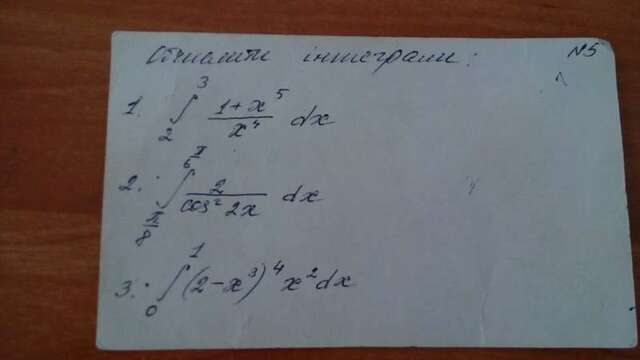 Обчислити інтеграли: №5
1. ∫₂³ (1+x⁵)/x⁴ dx
2. ∫_{π/8}^{π/6} 2/(cos² 2x) dx
3. ∫₀¹ (2-x³)⁴ x² dx